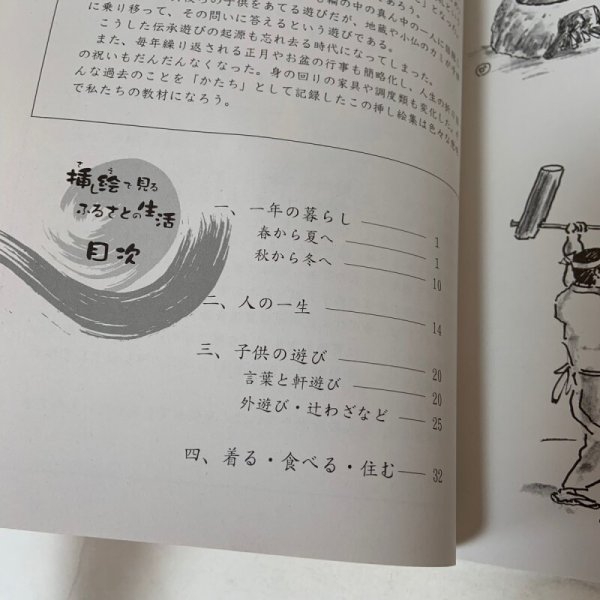 に乗り移って、その問いに答えるという遊びである。
こうした伝承遊びの起源も忘れ去る時代になってしまった。
また、毎年繰り返される正月やお盆の行事も簡略化し、人生の
の祝いもだんだんなくなった。身の回りの家具や調度類も変化した。
んな過去のことを「かたち」として記録したこの挿し絵集は色々な
で私たちの教材になろう。
挿し絵で見る
ふるさとの生活
目次
一、一年の暮らし 1
春から夏へ 1
秋から冬へ 10
二、人の一生 14
三、子供の遊び 20
言葉と軒遊び 20
外遊び・辻わざなど 25
四、着る・食べる・住む 32